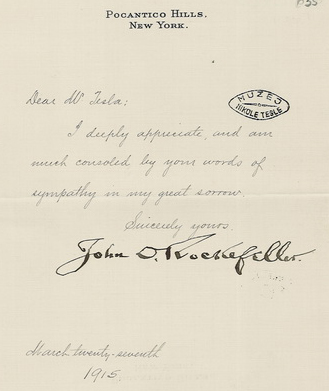 POCANTICO HILLS.
NEW YORK.
Dear Mr Tesla:
MUZEJ
NIKOLE TESLE
I deeply appreciate, and am
much consoled by your words of
sympathy in my great sorrow.
Sincerely yours,
John D. Rockefeller.
March twenty-seventh
1915.